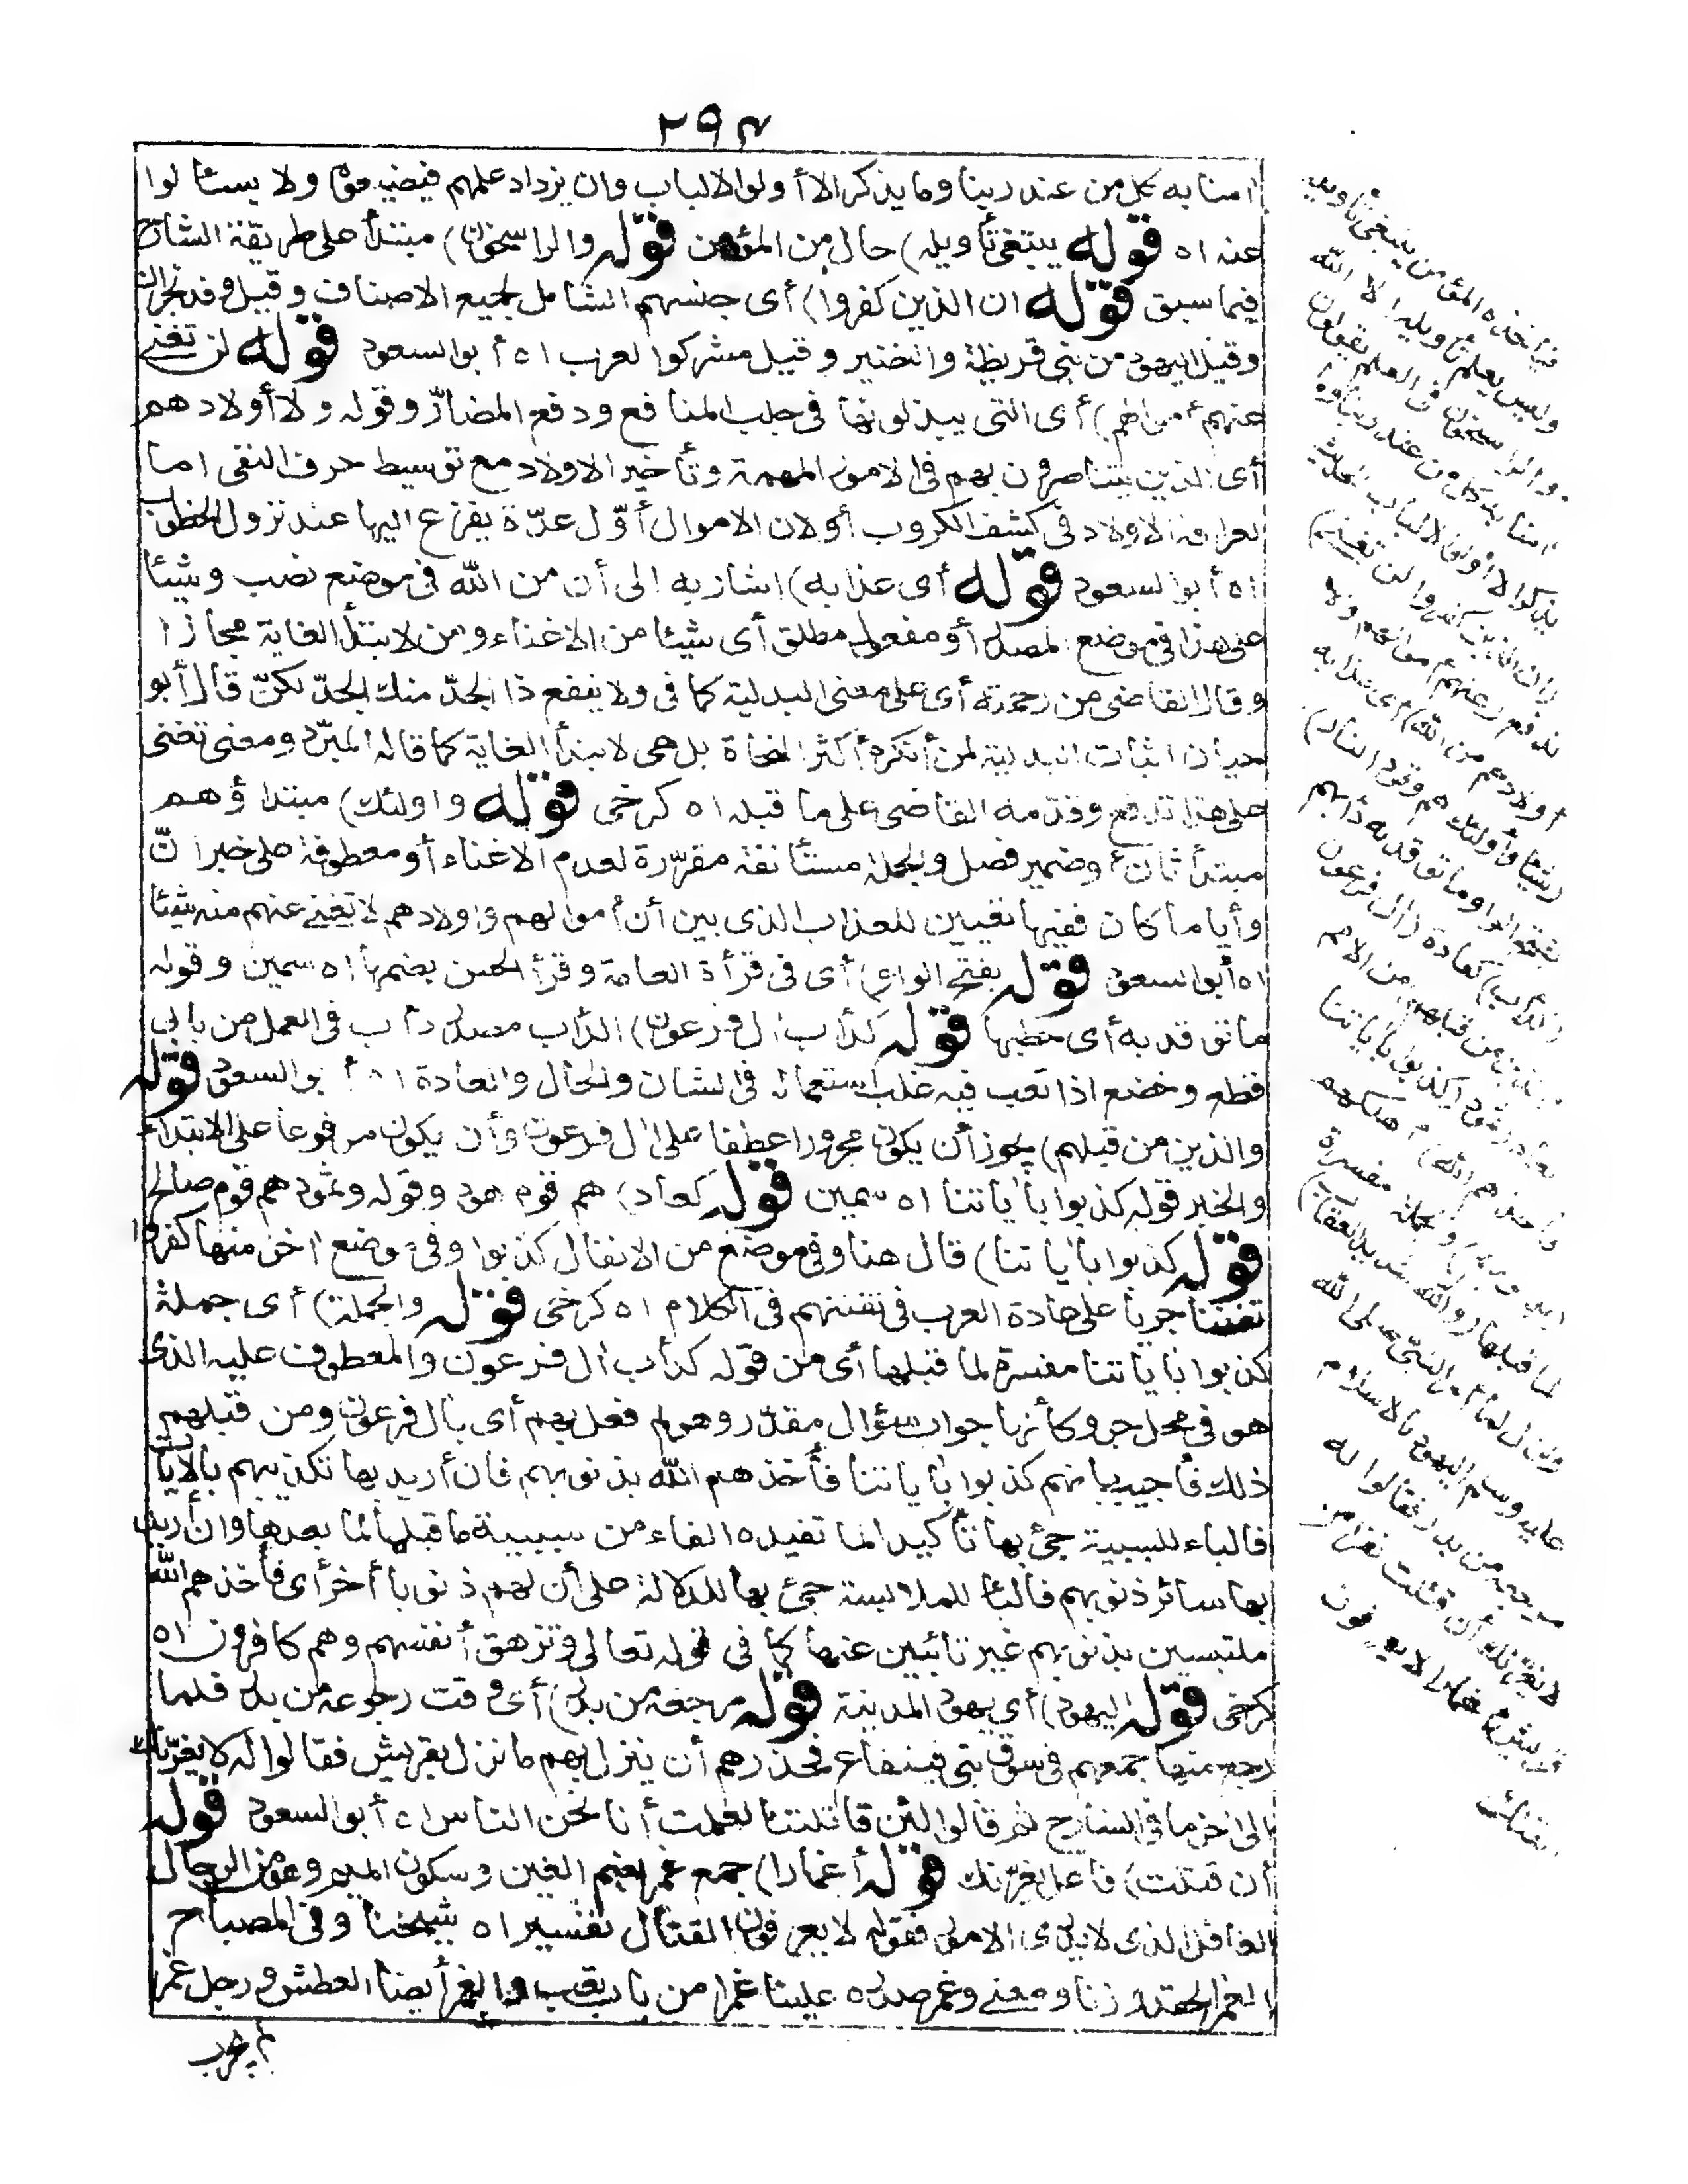 ٢٩٤
امنا به كل من عند ربنا وما يذكر الا أولوا الالباب وان يزداد علمهم فيضيعوه ولا يسئالوا
عنه اه قوله يبتغى تأويله) حال من المؤمن قوله والراسخون) مبتدأ على طريقة الشارح
فيما سبق قوله ان الذين كفروا) أى جنسهم الشامل لجميع الاصناف وقيل وفد نجران
وقيل اليهود من بنى قريظة والنضير وقيل مشركوا العرب اه أبوالسعود قوله لن تغنى
عنهم أموالهم) أى التى يبذلونها فى جلب المنافع ودفع المضارّ وقوله ولا أولادهم
أى الذين يتناصرون بهم فى الامور المهمة وتأخير الاولاد مع توسيط حرف النفى اما
لعراقة الاولاد فى كشف الكروب أولان الاموال أوّل عدّة يفزع اليها عند نزول الخطوب
اه أبوالسعود قوله أى عذابه) اشاربه الى أن من الله فى موضع نصب وشيئا
على هذا فى موضع المصدر أو مفعول مطلق أى شيئا من الاغناء ومن لابتدأ الغاية مجازا
وقال القاضى من رحمته أى على معنى البدلية كما فى ولا ينفع ذا الجدّ منك الجدّ لكن قال أبو
حيان اثبات البدلية لمن أنكره أكثر النحاة بل هى لابتدأ الغاية كما قاله المبرّد ومعنى تغنى
على هذا تدفع وقدّمه القاضى على ما قبله اه كرخى قوله واولئك) مبتدا وهم
مبتدأ ثان أوضمير فصل والجملة مستأنفة مقرّرة لعدم الاغناء أو معطوفة على خبر انّ
وأياما كان ففيها تعيين للعذاب الذى بين أن أموالهم واولادهم لا تغنى عنهم منه شيئا
اه أبوالسعود قوله بفتح الواو) أى فى قرأة العامة وقرأ الحسن بضمها اه سمين وقوله
ما توقد به أى حطبها قوله كدأب ال فرعون) الدأب مصدر دأب فى العمل من بابى
قطع وخضع اذا تعب فيه غلب استعماله فى الشان والحال والعادة اه أبوالسعود قوله
والذين من قبلهم) يجوز أن يكون مجرورا عطفا على ال فرعون وأن يكون مرفوعا على الابتداء
والخبر قوله كذبوا باياتنا اه سمين قوله كعاد) هم قوم هود وقوله وثمود هم قوم صالح
قوله كذبوا باياتنا) قال هنا وفى موضع من الانفال كذبوا وفى موضع اخر منها كفروا
تفننا جريا على عادة العرب فى تفننهم فى الكلام اه كرخى قوله والجملة) أى جملة
كذبوا باياتنا مفسرة لما قبلها أى من قوله كدأب ال فرعون والمعطوف عليه الذى
هو فى محل جر وكأنها جواب سؤال مقدّر وهو لم فعل بهم أى بال فرعون ومن قبلهم
ذلك فأجيب بانهم كذبوا باياتنا فأخذهم الله بذنوبهم فان أريد بها تكذيبهم بالايات
فالباء للسببية جئ بها تأكيدا لما تفيده الفاء من سببية ما قبلها لما بعدها وان أريد
بها سائر ذنوبهم فالباء للملابسة جئ بها للدلالة على أن لهم ذنوبا أخر أى فأخذهم الله
ملتبسين بذنوبهم غير تائبين عنها كما فى قوله تعالى وتزهق أنفسهم وهم كافرون اه
كرخى قوله اليهود) أى يهود المدينة قوله مرجعه من بدر) أى وقت رجوعه من بدر فلما
رجع منها جمعهم فى سوق بنى قينقاع فحذرهم أن ينزل بهم ما نزل بقريش فقالوا له لا يغرّنك
الى اخر ما فى الشارح ثم قالوا لئن قاتلتنا لعلمت أنا نحن الناس اه أبوالسعود قوله
أن قتلت) فاعل يغرّنك قوله أغمارا) جمع غمر بضم الغين وسكون الميم وهو من الرجال
الغافل الذى لا يدرى الامور فقوله لا يعرفون القتال تفسير اه شيخنا وفى المصباح
الغمر الحقد وزنا ومعنى وغمر صدره علينا غمرا من باب تعب والغمر أيضا العطش ورجل غمر
لم يجرب
فيأخذه المؤمن يبتغى تأويله
وليس يعلم تأويله الا الله
والراسخون فى العلم يقولون
امنا به كل من عند ربنا وما
يذكر الا أولوا الالباب الحديث
(ان الذين كفروا لن تغنى)
تدفع (عنهم أموالهم ولا
أولادهم من الله) أى عذابه
(شيئا وأولئك هم وقود النار)
بفتح الواو ما توقد به دأبهم
(كدأب) كعادة (ال فرعون
والذين من قبلهم) من الامم
كعاد وثمود (كذبوا باياتنا
فأخذهم الله) أهلكهم
(بذنوبهم) والجملة مفسرة
لما قبلها (والله شديد العقاب)
ونزل لما أمر النبىّ صلى الله
عليه وسلم اليهود بالاسلام
مرجعه من بدر فقالوا له
لا يغرّنك أن قتلت نفرا من
قريش أغمارا لا يعرفون
القتال